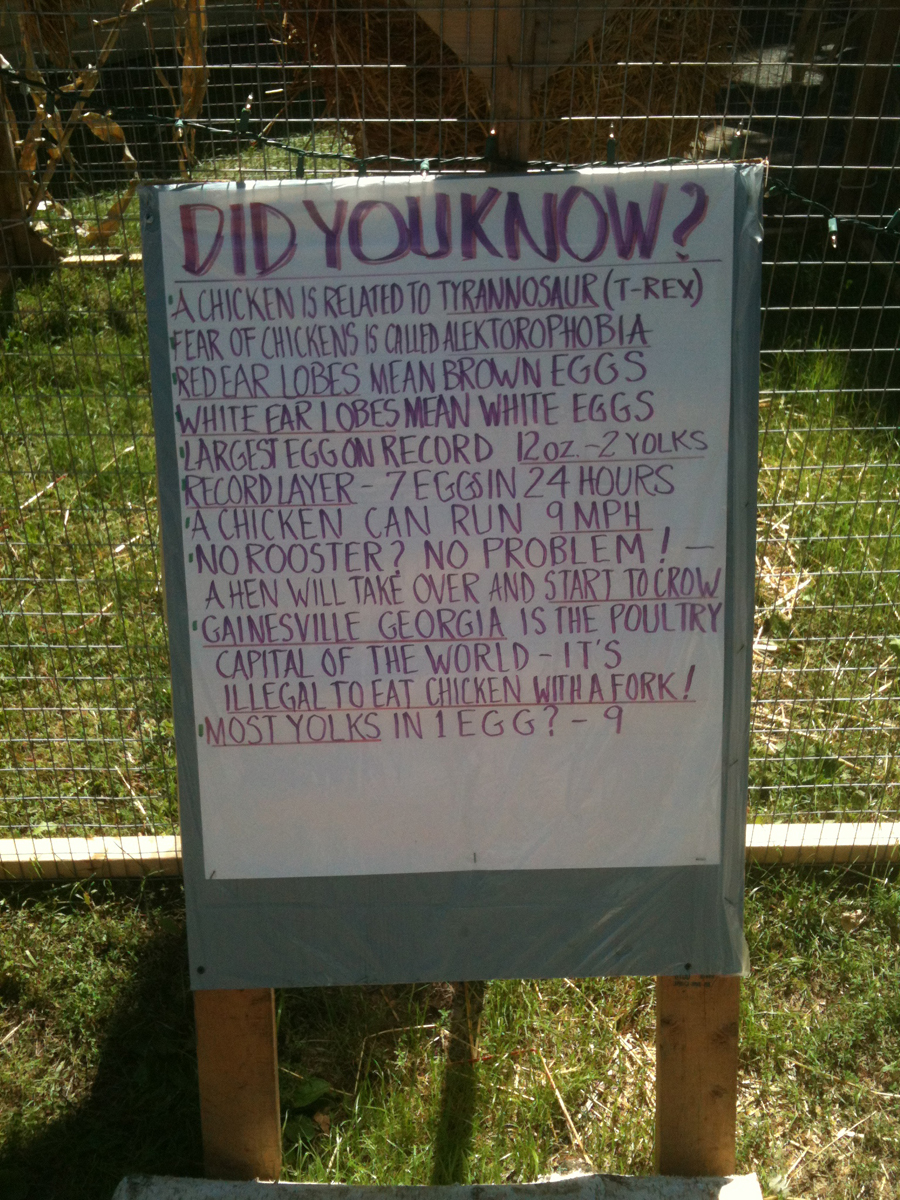 DID YOU KNOW?
A CHICKEN IS RELATED TO TYRANNOSAUR (T-REX)
FEAR OF CHICKENS IS CALLED ALEKTOROPHOBIA
RED EAR LOBES MEAN BROWN EGGS
WHITE EAR LOBES MEAN WHITE EGGS
LARGEST EGG ON RECORD 12oz. - 2 YOLKS
RECORD LAYER - 7 EGGS IN 24 HOURS
A CHICKEN CAN RUN 9 MPH
NO ROOSTER? NO PROBLEM! -
A HEN WILL TAKE OVER AND START TO CROW
GAINESVILLE GEORGIA IS THE POULTRY
CAPITAL OF THE WORLD - IT'S
ILLEGAL TO EAT CHICKEN WITH A FORK!
MOST YOLKS IN 1 EGG? - 9